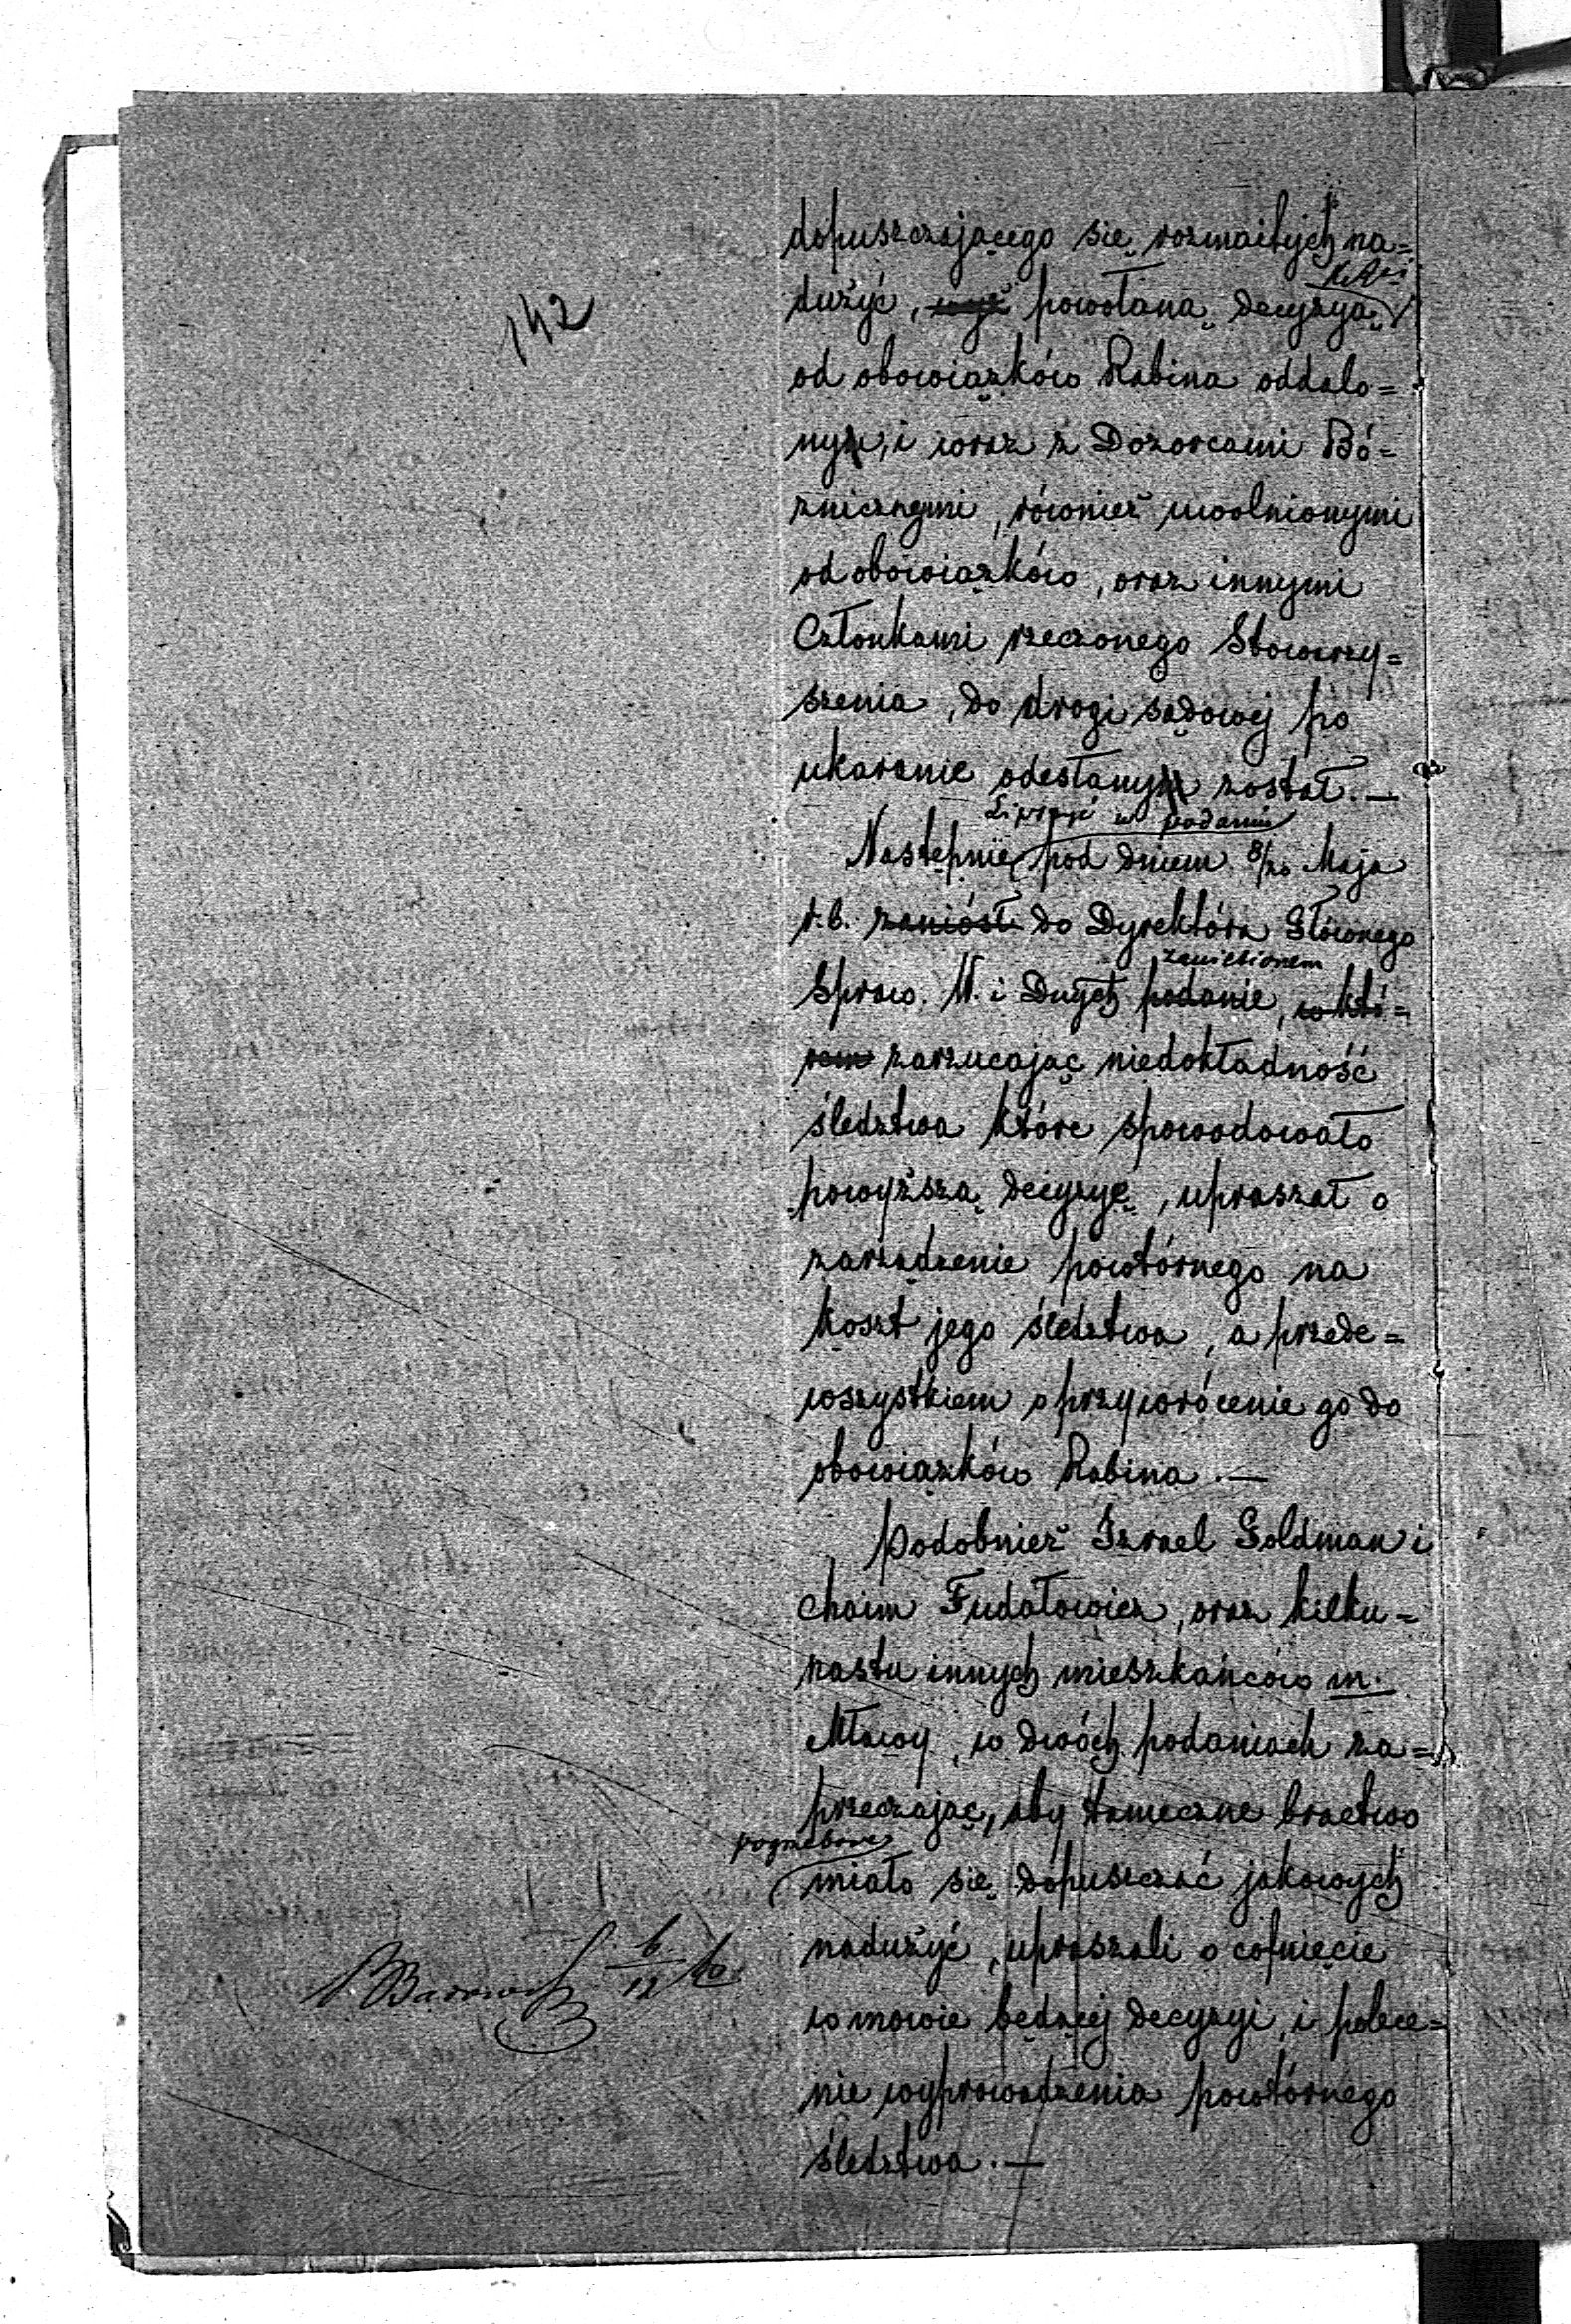 142
dopuszczającego się rozmaitych na=
dużyć, powołaną decyzyą
od obowiązków Rabina oddalo=
nym, i wraz z Dozorcami Bó=
żnicznymi, również uwolnionymi
od obowiązków, oraz innymi
Członkami rzeczonego Stowarzy=
szenia, do drogi sądowej po
ukaranie odesłanym został.—
Lipszyc w podaniu
Następnie pod dniem 8/20 Maja
r.b. zaniósł do Dyrektóra Głównego
zaniesionem
Spraw. W. i Duych podanie, w któ=
rem zarzucając niedokładność
śledztwa które spowodowało
powyższą decyzyę, upraszał o
zarządzenie powtórnego na
koszt jego śledztwa, a przede=
wszystkiem o przywrócenie go do
obowiązków Rabina.—
Podobnież Izrael Goldman i
Chaim Fudałowicz, oraz kilku=
nastu innych mieszkańców m.
Mławy, w dwóch podaniach za=
przeczając, aby tameczne bractwo
pogrzebowe
miało się dopuszczać jakowych
nadużyć, upraszali o cofnięcie
w mowie będącej decyzyi, i polece=
nie wyprowadzenia powtórnego
śledztwa.—